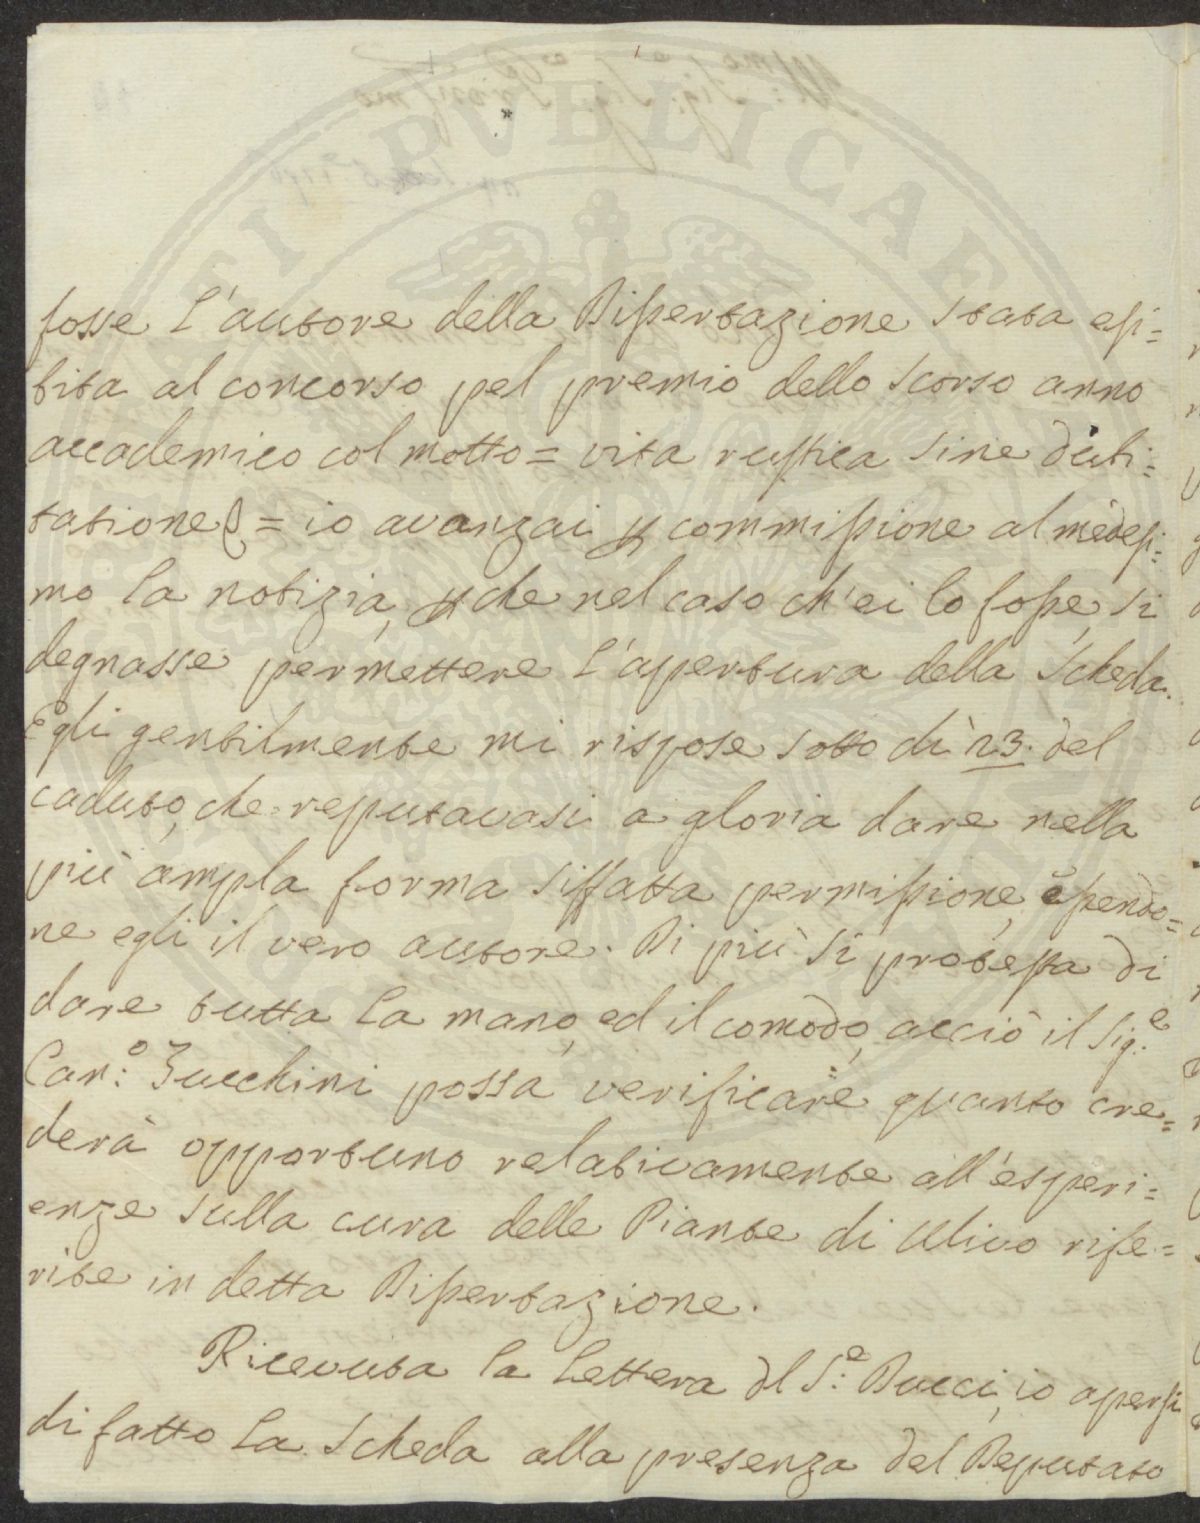 fosse l'autore della Dissertazione stata esi=
bita al concorso pel premio dello scorso anno
accademico col motto = vita rustica sine dubi=
tatione = io avanzai commissione al medesi=
mo la notizia, che nel caso ch'ei lo fosse, si
degnasse permettere l'apertura della Scheda.
Egli gentilmente mi rispose sotto dì 23. del
caduto, che reputavasi a gloria dare nella
più ampla forma siffatta permissione, essendo=
ne egli il vero autore. Di più si protesta di
dare tutta la mano, ed il comodo, acciò il Sig.e
Can:o Zucchini possa verificare quanto cre=
derà opportuno relativamente all'esperi=
enze sulla cura delle Piante di Ulivo rife=
rite in detta Dissertazione.
Ricevuta la Lettera dl S:e Bucci, io apersi
di fatto la Scheda alla presenza del Deputato
PUBLICAE